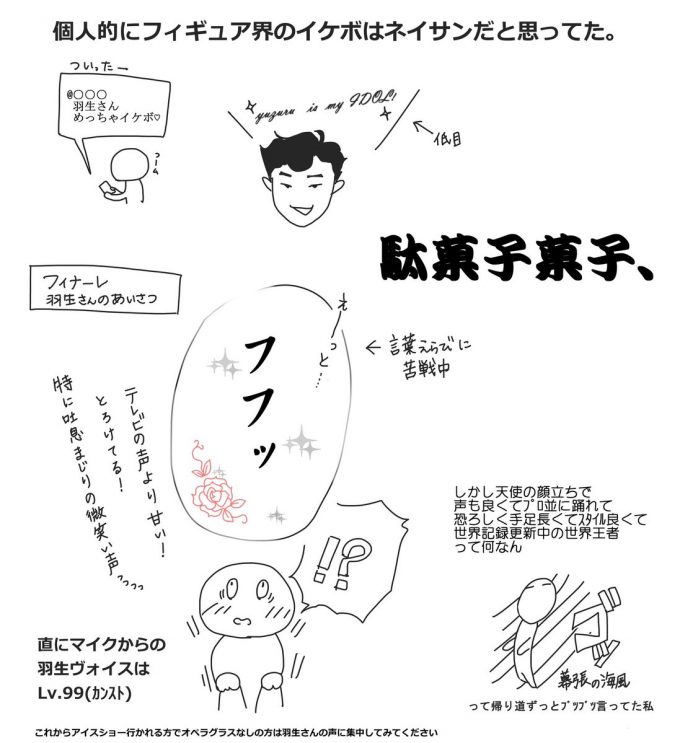 個人的にフィギュア界のイケボはネイサンだと思ってた。
ついったー
@○○○
羽生さん
めっちゃイケボ♡
つーん
yuzuru is my IDOL!
低目
駄菓子菓子、
フィナーレ
羽生さんのあいさつ
え
っと…
フフッ
←言葉えらびに
苦戦中
テレビの声より甘い!
とろけてる!
特に吐息まじりの微笑い声っっっっ
!?
しかし天使の顔立ちで
声も良くてﾌﾟﾛ並に踊れて
恐ろしく手足長くてｽﾀｲﾙ良くて
世界記録更新中の世界王者
って何なん
直にマイクからの
羽生ヴォイスは
Lv.99(ｶﾝｽﾄ)
幕張の海風
って帰り道ずっとﾌﾞﾂﾌﾞﾂ言ってた私
これからアイスショー行かれる方でオペラグラスなしの方は羽生さんの声に集中してみてください